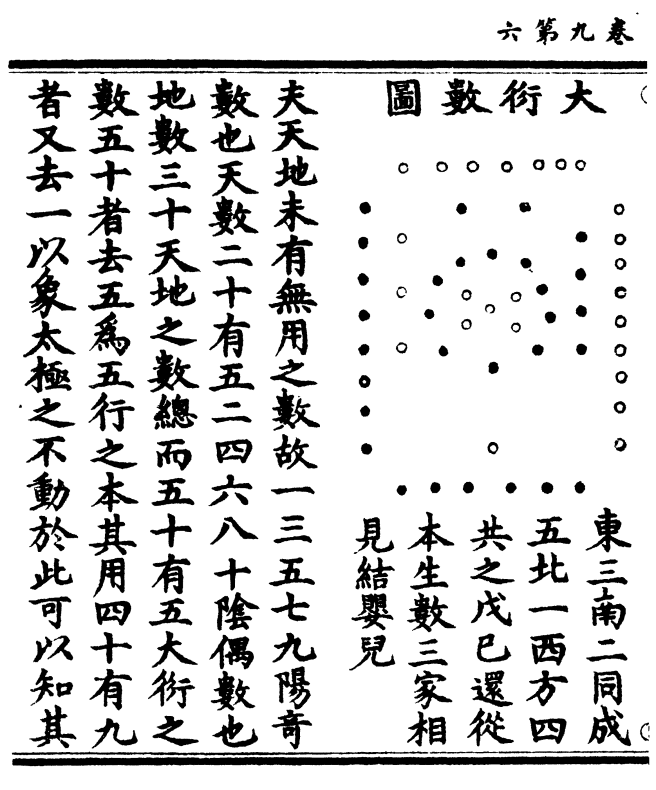 卷九第六
大衍數圖
東三南二同成
五北一西方四
共之戊已還從
本生數三家相
見結嬰兒
夫天地未有無用之數故一三五七九陽奇
數也天數二十有五二四六八十陰偶數也
地數三十天地之數總而五十有五大衍之
數五十者去五爲五行之本其用四十有九
者又去一以象太極之不動於此可以知其